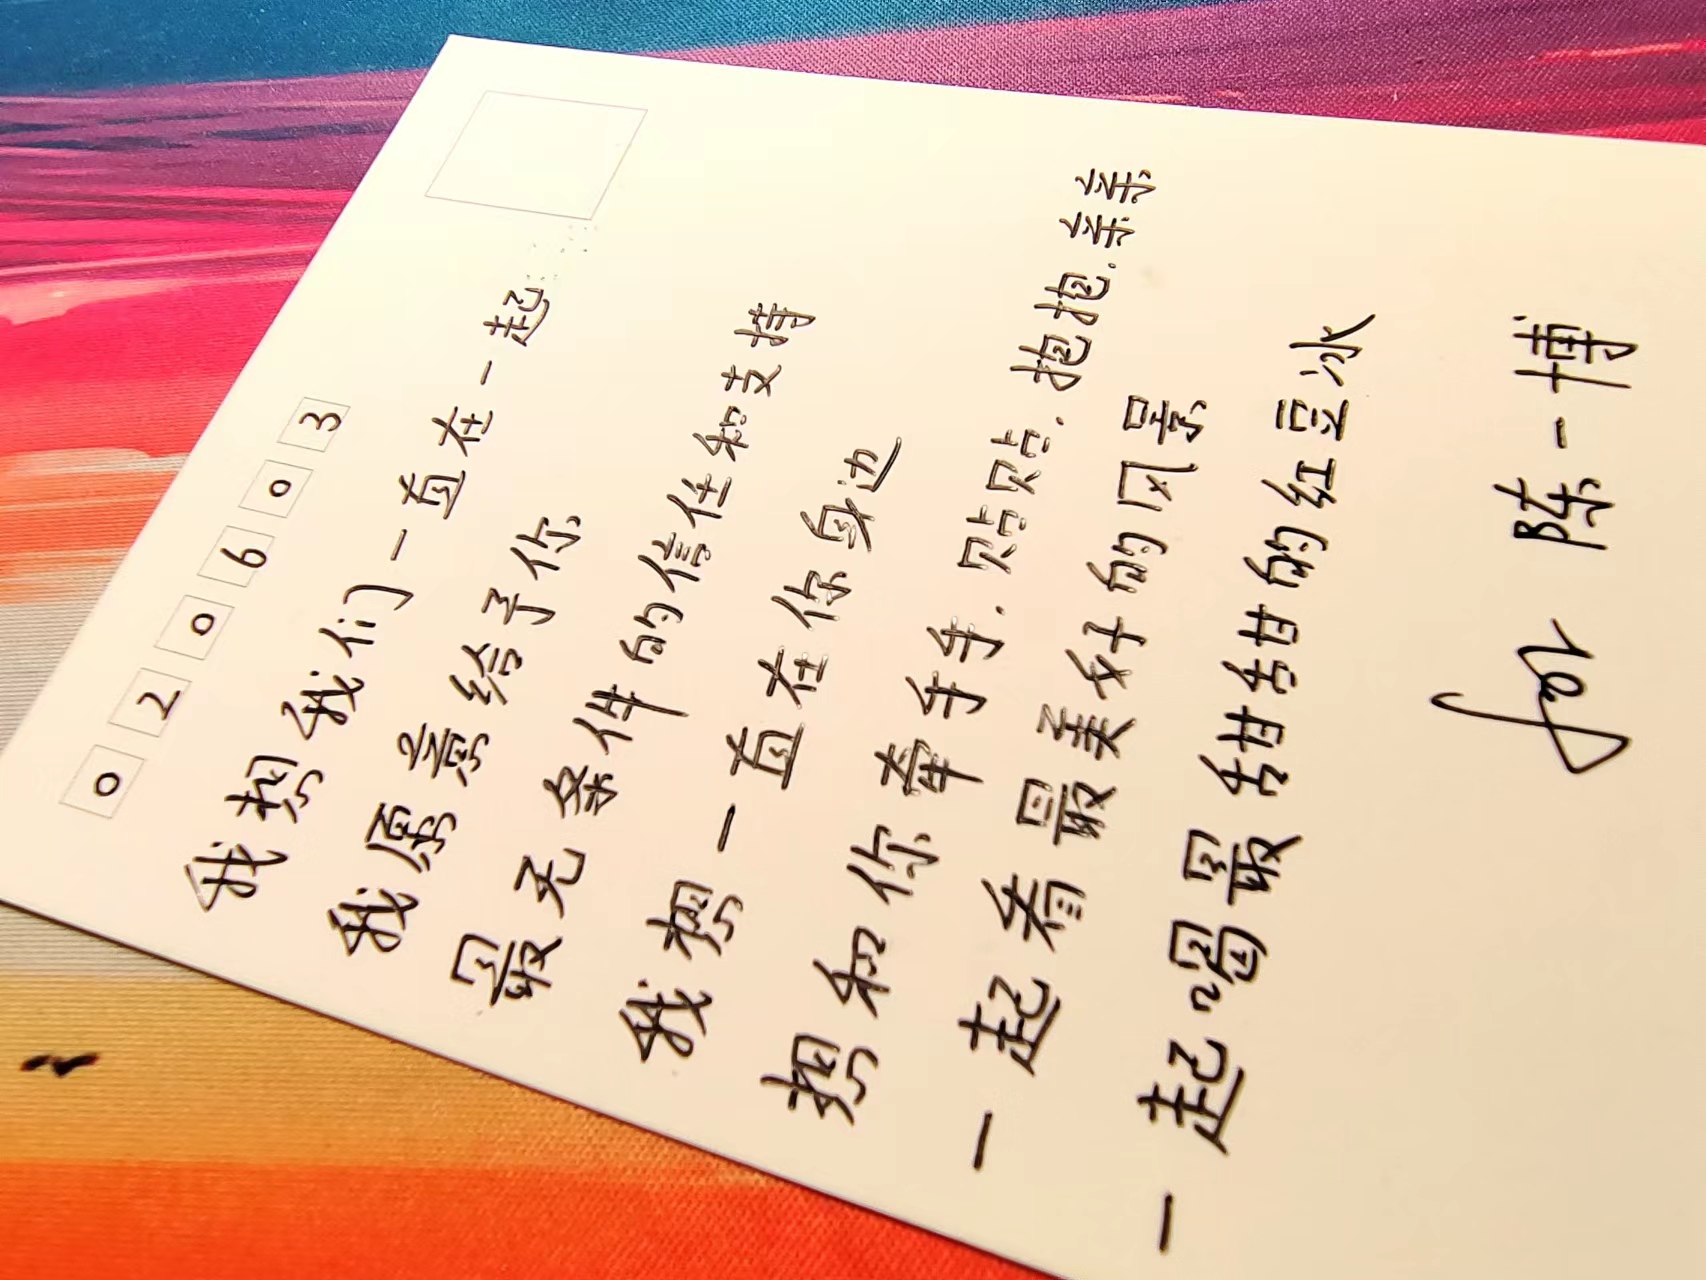 020603
我想我们一直在一起
我愿意给予你
最无条件的信任和支持
我想一直在你身边
想和你牵手手.贴贴.抱抱.亲亲
一起看最美好的风景
一起喝最甜甜的红豆冰
for 陈一博